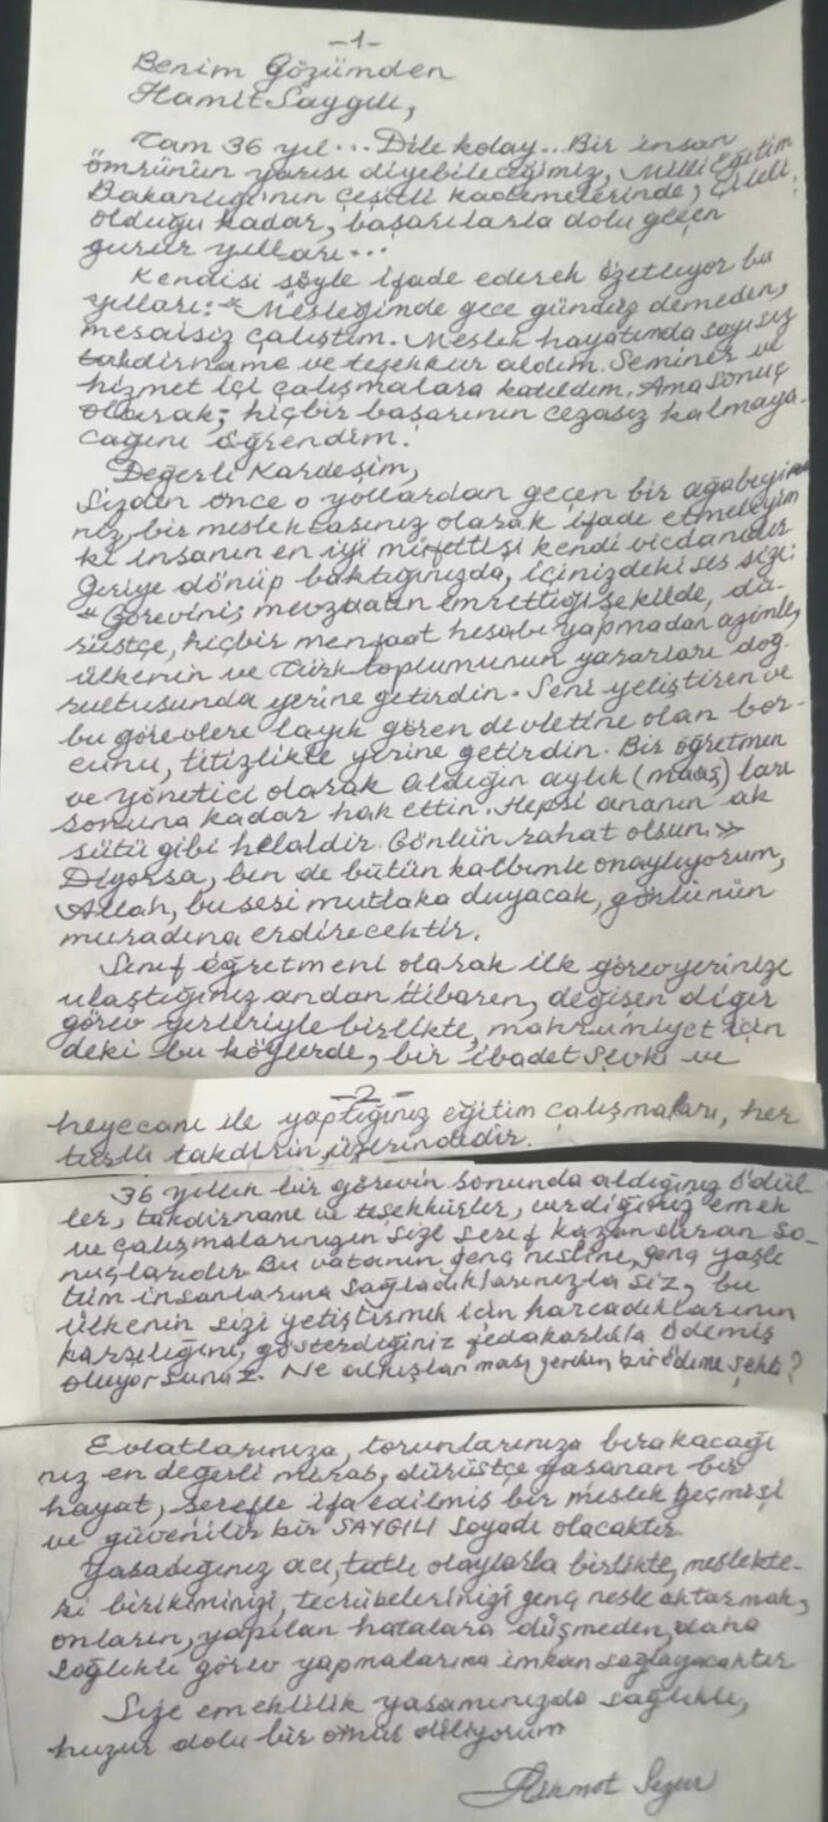 -1-
Benim Gözümden
Hamit Saygılı,
Tam 36 yıl... Dile kolay... Bir insan
ömrünün yarısı diyebileceğimiz, Milli Eğitim
Bakanlığı'nın çeşitli kademelerinde, çileli
olduğu kadar, başarılarla dolu geçen
gurur yılları...
Kendisi şöyle ifade ederek özetliyor bu
yılları: "Mesleğimde gece gündüz demeden,
mesaisiz çalıştım. Meslek hayatımda sayısız
takdirname ve teşekkür aldım. Seminer ve
hizmet içi çalışmalara katıldım. Ama sonuç
olarak; hiçbir başarının cezasız kalmaya-
cağını öğrendim."
Değerli Kardeşim,
Sizden önce o yollardan geçen bir ağabeyini
niz, bir meslektaşınız olarak ifade etmeliyim
ki insanın en iyi müfettişi kendi vicdanıdır
Geriye dönüp baktığınızda, içinizdeki ses size:
"Görevini; mevzuatın emrettiği şekilde, dü-
rüstçe, hiçbir menfaat hesabı yapmadan azimle,
ülkenin ve Türk toplumunun yararları doğ-
rultusunda yerine getirdin. Seni yetiştiren ve
bu görevlere layık gören devletine olan bor-
cunu, titizlikle yerine getirdin. Bir öğretmen
ve yönetici olarak aldığın aylık (maaş) ları
sonuna kadar hak ettin. Hepsi ananın ak
sütü gibi helaldir. Gönlün rahat olsun."
Diyorsa, ben de bütün kalbimle onaylıyorum,
Allah, bu sesi mutlaka duyacak, gönlünün
muradına erdirecektir.
Sınıf öğretmeni olarak ilk görev yerinize
ulaştığınız andan itibaren, değişen diğer
görev yerleriyle birlikte, mahrumiyet için
deki bu köylerde, bir ibadet şevki ve
-2-
heyecanı ile yaptığınız eğitim çalışmaları, her
türlü takdirin üzerindedir.
36 yıllık bir görevin sonunda aldığınız ödül-
ler, takdirname ve teşekkürler, verdiğiniz emek
ve çalışmalarınızın size şeref kazandıran so-
nuçlarıdır. Bu vatanın genç nesline, genç yaşlı
tüm insanlarına sağladıklarınızla siz, bu
ülkenin sizi yetiştirmek için harcadıklarının
karşılığını, gösterdiğiniz fedakarlıkla ödemiş
oluyorsunuz. Ne alkışlanması gereken bir ödeme şekli?
Evlatlarınıza, torunlarınıza bırakacağı
nız en değerli miras, dürüstçe yaşanan bir
hayat, şerefle ifa edilmiş bir meslek geçmişi
ve güvenilir bir SAYGILI soyadı olacaktır.
Yaşadığınız acı, tatlı olaylarla birlikte, meslekte-
ki birikiminizi, tecrübelerinizi genç nesle aktarmak,
onların, yapılan hatalara düşmeden, daha
sağlıklı görev yapmalarına imkan sağlayacaktır
Size emeklilik yaşamınızda sağlıklı,
huzur dolu bir ömür diliyorum
Hikmet Sezer